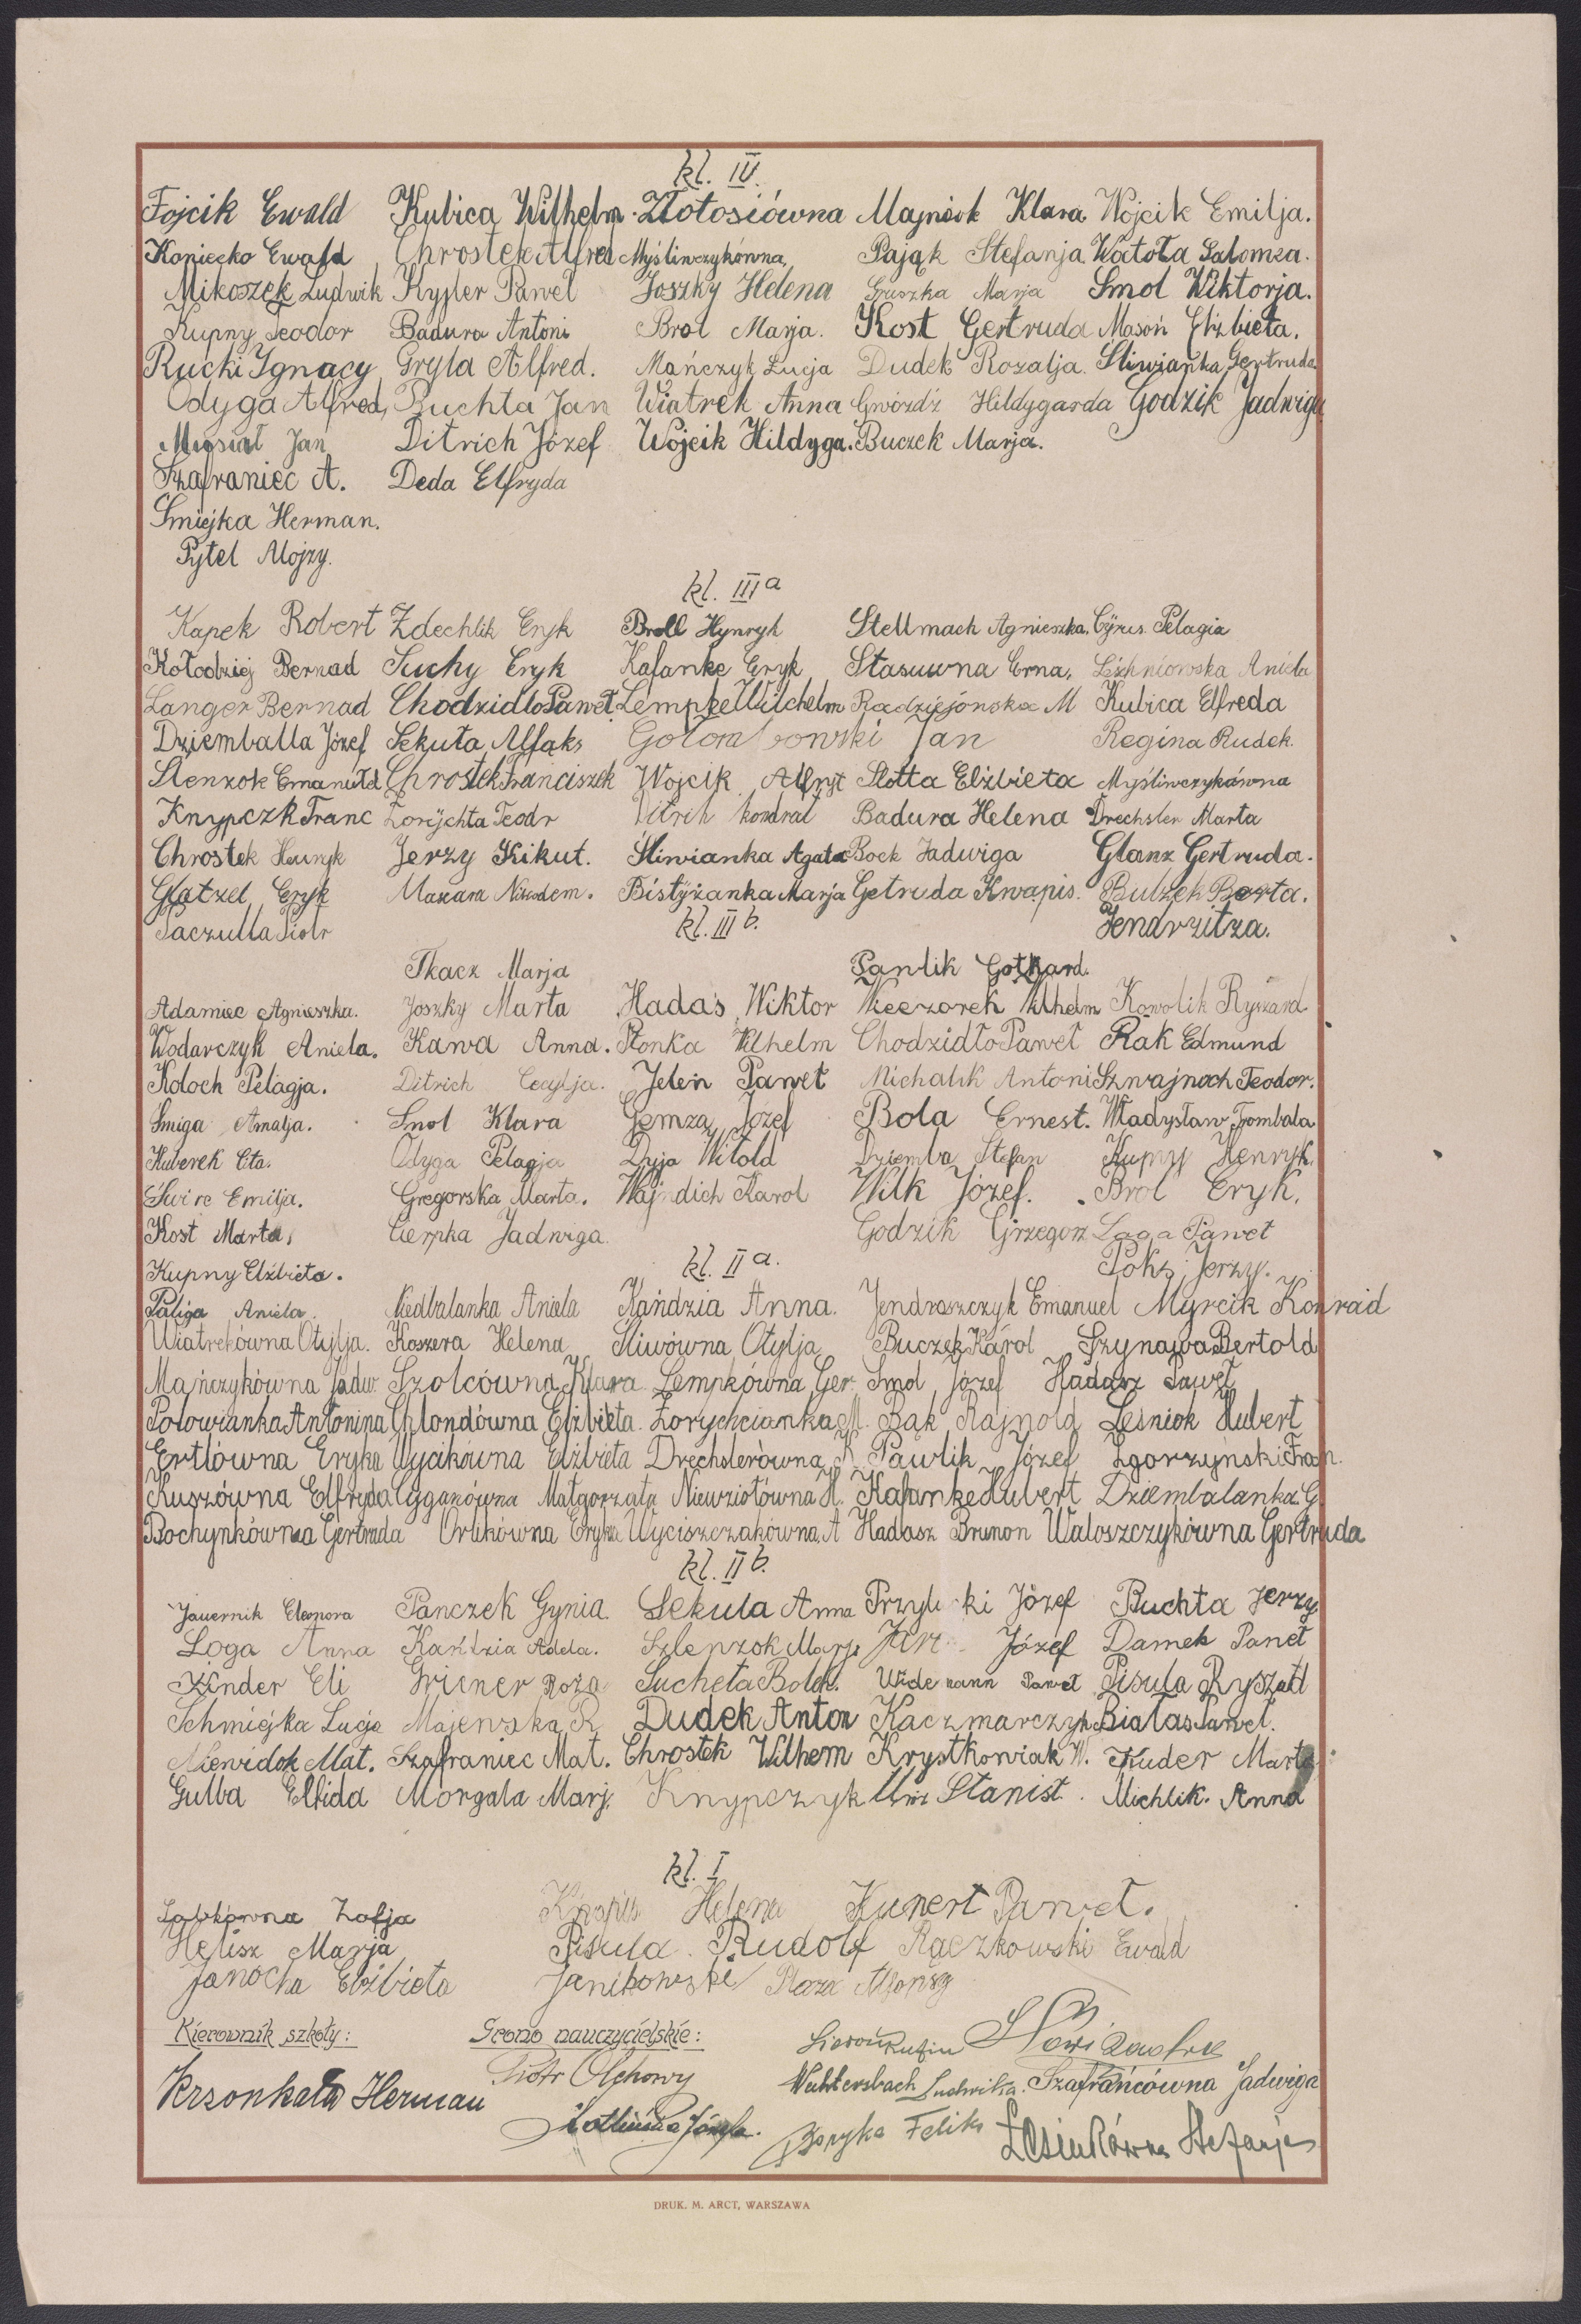 kl. IV.
Fojcik Ewald Kubica Wilhelm. Złotosiówna Majniok Klara Wojcik Emilja.
Koniecko Ewald Chrostek Alfred Myśliwczykówna, Pająk Stefanja Watoła Salomea.
Mikoszek Ludwik Kysler Paweł Joszky Helena Gruszka Marja Smol Wiktorja.
Kupny Teodor Badura Antoni Brol Marja. Kost Gertruda Masoń Elżbieta.
Rucki Ignacy Gryla Alfred. Mańczyk Łucja Dudek Rozalja. Śliwianka Gertruda
Odyga Alfred, Buchta Jan Wiatrek Anna Gwóźdź Hildygarda Godzik Jadwiga
Musioł Jan Ditrich Józef Wojcik Hildyga. Buczek Marja.
Szafraniec A. Deda Elfryda
Śmiejka Herman.
Pytel Alojzy.
kl. IIIa
Kapek Robert Zdechlik Eryk Broll Hynryk Stellmach Agnieszka. Cyrus Pelagia
Kołodziej Bernad Suchy Eryk Kafanke Eryk Stasuwna Erna, Aniela
Langer Bernad Chodzidło Paweł Lempke Wilchelm Radziejónska M Kubica Elfreda
Dziemballa Józef Sekuła Alfąks Gołombowski Jan Regina Rudek.
Slenzok Emanuel Chrostek Franciszek Wojcik Alfryt Slotta Elżbieta Myśliwczykówna
Knypczk Franc Zorychta Teodr Ditrih kondrat Badura Helena Drechsler Marta
Chrostek Henryk Jerzy Kikut. Śliwianka Agata Bock Jadwiga Glanz Gertruda.
Glatzel Eryk Makara Nikodem. Bistyżanka Marja Getruda Kwapis. Bulzek Berta.
Paczulla Piotr kl. IIIb. Jendrzitza.
Tkacz Marja Pawlik Gothard.
Adamiec Agnieszka. Joszky Marta Hadaś Wiktor Wieczorek Wilhelm Kowolik Ryszard
Wodarczyk Aniela. Kawa Anna. Płonka Wilhelm Chodzidło Paweł Rak Edmund
Koloch Pelagja. Ditrich Cecylja. Jeleń Paweł Michalik Antoni Szwajnoch Teodor.
Śmiga Amalja. Smol Klara Gemza Józef Bola Ernest. Władysław Trombala
Kuberek Eta. Odyga Pelagja Dyja Witold Dziemba Stefan Kupny Henryk.
Świre Emilja. Gregorska Marta. Wajndich Karol Wilk Józef. Brol Eryk.
Kost Marta, Cierpka Jadwiga. Godzik Grzegorz Laga Paweł
Kupny Elżbieta. kl. IIa. Poks Jerzy.
Paliga Aniela. Niedbalanka Aniela Kańdzia Anna. Jendraszczyk Emanuel Myrcik Konrad
Wiatrekówna Otylja. Koszera Helena Śliwówna Otylja Buczek Karol Szynawa Bertold
Mańczykówna Jadw. Szolcówna Klara. Lempkówna Ger. Smol Józef Hadasz Paweł
Połowianka Antonina Chlondówna Elżbieta. Zorychcianka M. Bąk Rajnold Leśniok Hubert
Ertlówna Eryka Wycikówna Elżbieta Drechslerówna K. Pawlik Józef Zgorzyński Fran.
Kuszówna Elfryda Cyganówna Małgorzata Niewziołówna H. Kafanke Hubert Dziembalanka G.
Bochynkówna Gertruda Orlikówna Eryka Wyciszczakówna A Hadasz Brunon Waloszczykówna Gertruda
kl. IIb.
Jauernik Eleonora Panczek Gynia. Sekula Anna Józef Buchta Jerzy
Loga Anna Kańdzia Adela. Szlenzok Marj. Józef Damek Paweł
Kinder Eli Griener Roża Sucheta Bolek. Widemann Paweł Pisula Ryszard
Schmiejka Lucja Majewska R Dudek Anton Kaczmarczyk Białas Paweł.
Niewidok Mat. Szafraniec Mat. Chrostek Wilhem Krystkowiak W. Kuder Marta
Gulba Elfida Morgala Marj. Knypczyk Stanisł. Michlik. Anna
kl. I
Labkówna Zofja Knapis Helena Kunert Paweł.
Helisz Marja Pisula. Rudolf Rączkowski Ewald
Janocha Elżbieta Janikowski Plaza Alfonsy
Kierownik szkoły: Grono nauczycielskie: Sieroń Rufin
Krzonkała Herman Piotr Olchowy Wachtersbach Ludwika. Szafrańcówna Jadwiga
Józefa. Boryka Feliks Łosiukówna Stefanja
DRUK. M. ARCT, WARSZAWA